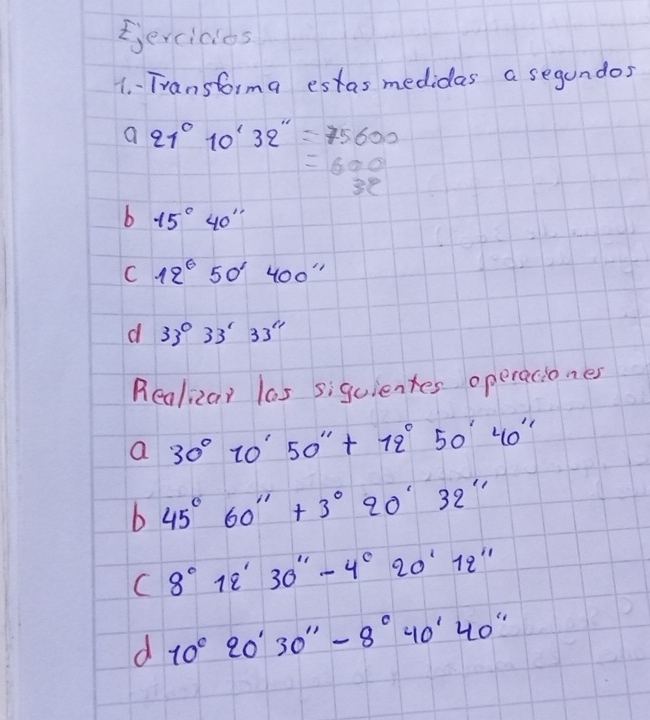 Ejercicios
1.- Transforma estas medidas a segundos
a 21° 10' 32" = 75600
= 600
32
b 15° 40"
c 12° 50' 400"
d 33° 33' 33"
Realizar las siguientes operaciones
a 30° 10' 50" + 12° 50' 40"
b 45° 60" + 3° 20' 32"
c 8° 12' 30" - 4° 20' 12"
d 10° 20' 30" - 8° 40' 40"